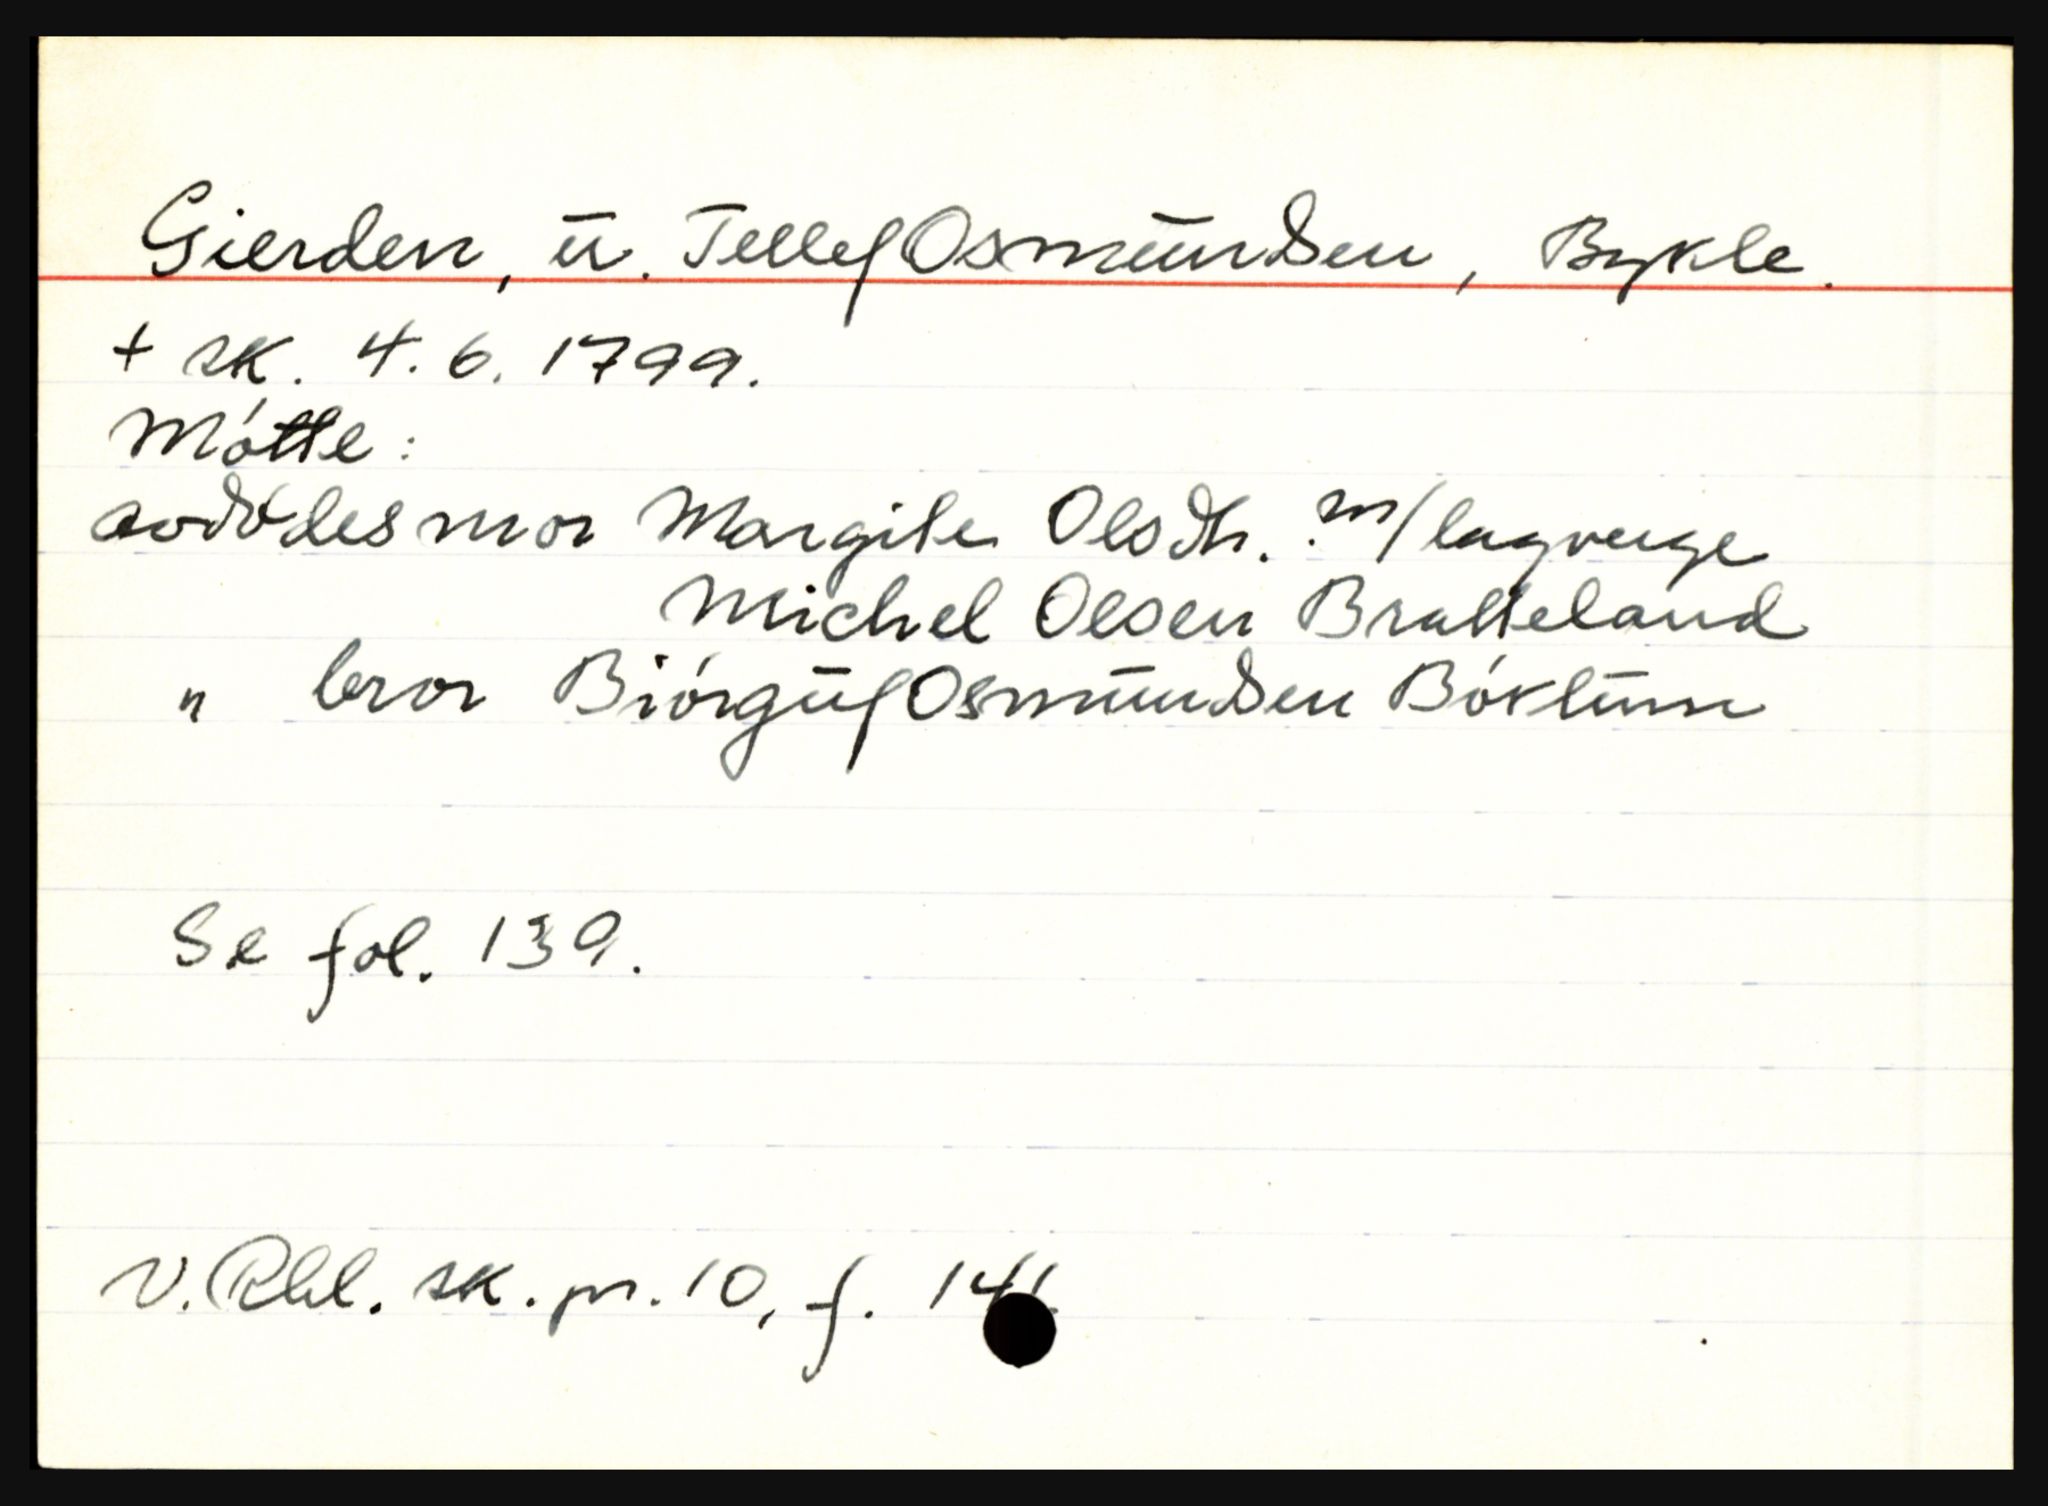 Gierden, u. Tellef Osmundsen, Bykle.
+ sk. 4. 6. 1799.
Mótte:
avdödes mor Margite Olsdtr. m/lagverge
Michel Olsen Bratteland
" bror Biórguf Osmundsen Bóklum
Se fol. 139.
V. Rbl. sk. pr. 10, f. 141